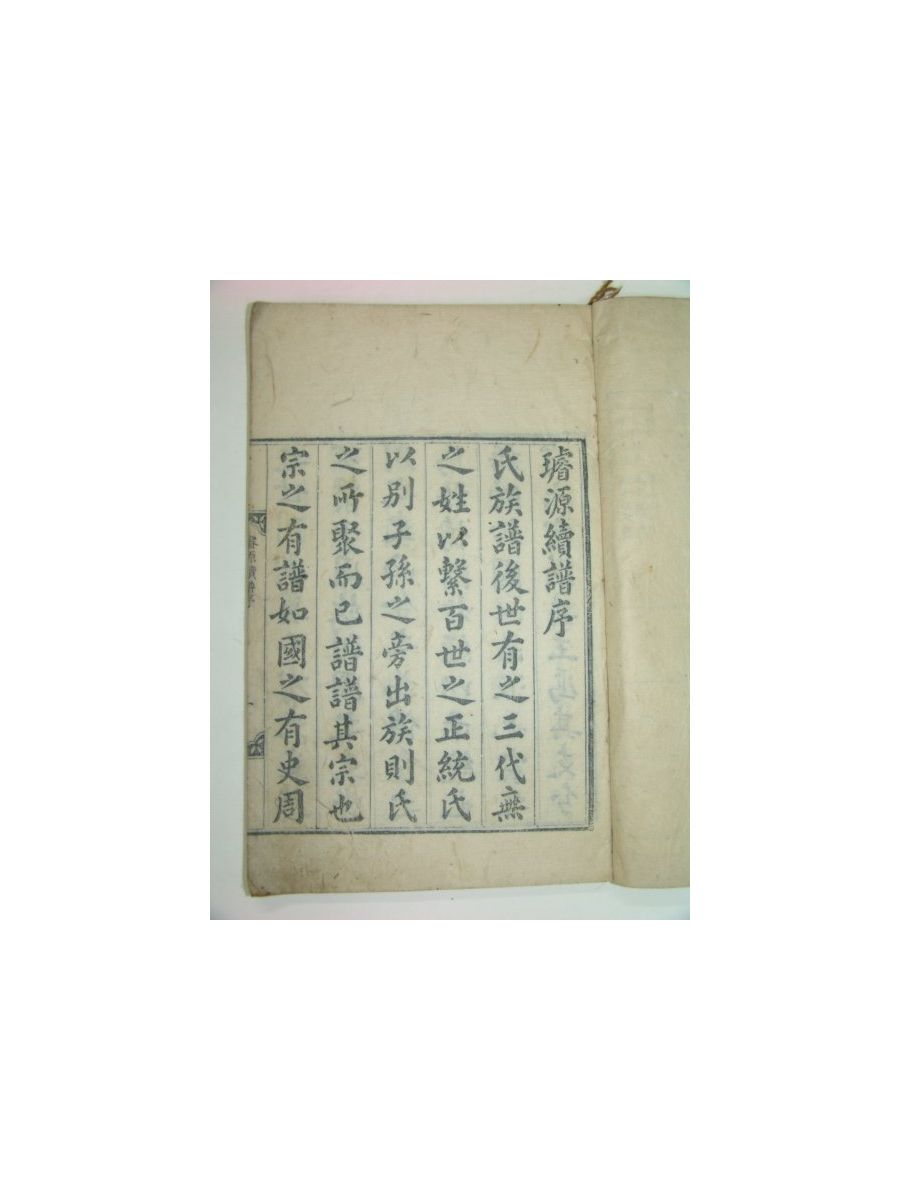 璿源續譜序
氏族譜後世有之三代無
之姓以繫百世之正統氏
以別子孫之旁出族則氏
之所聚而已譜譜其宗也
宗之有譜如國之有史周